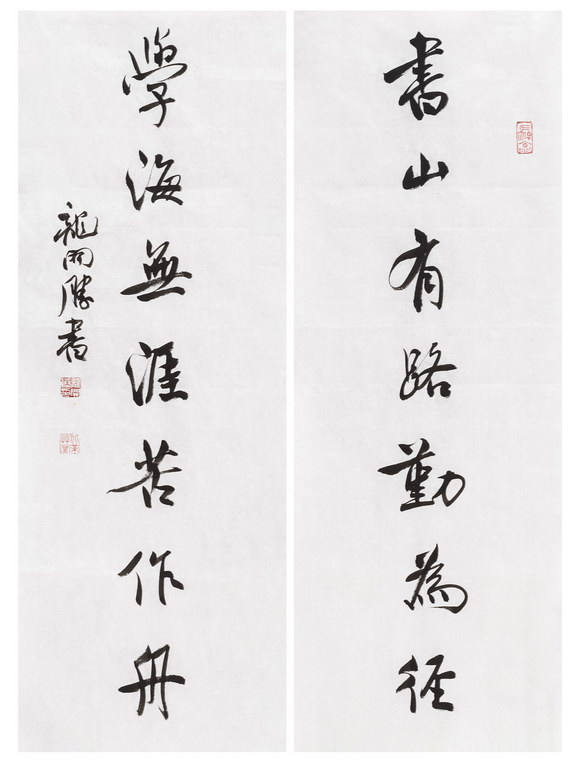 書山有路勤為徑
學海無涯苦作舟
龍開勝書